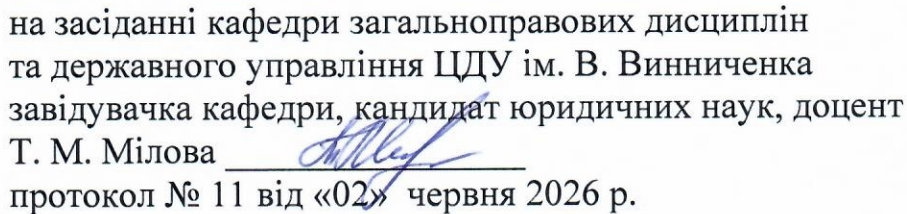 на засіданні кафедри загальноправових дисциплін
та державного управління ЦДУ ім. В. Винниченка
завідувачка кафедри, кандидат юридичних наук, доцент
Т. М. Мілова
протокол № 11 від «02» червня 2026 р.